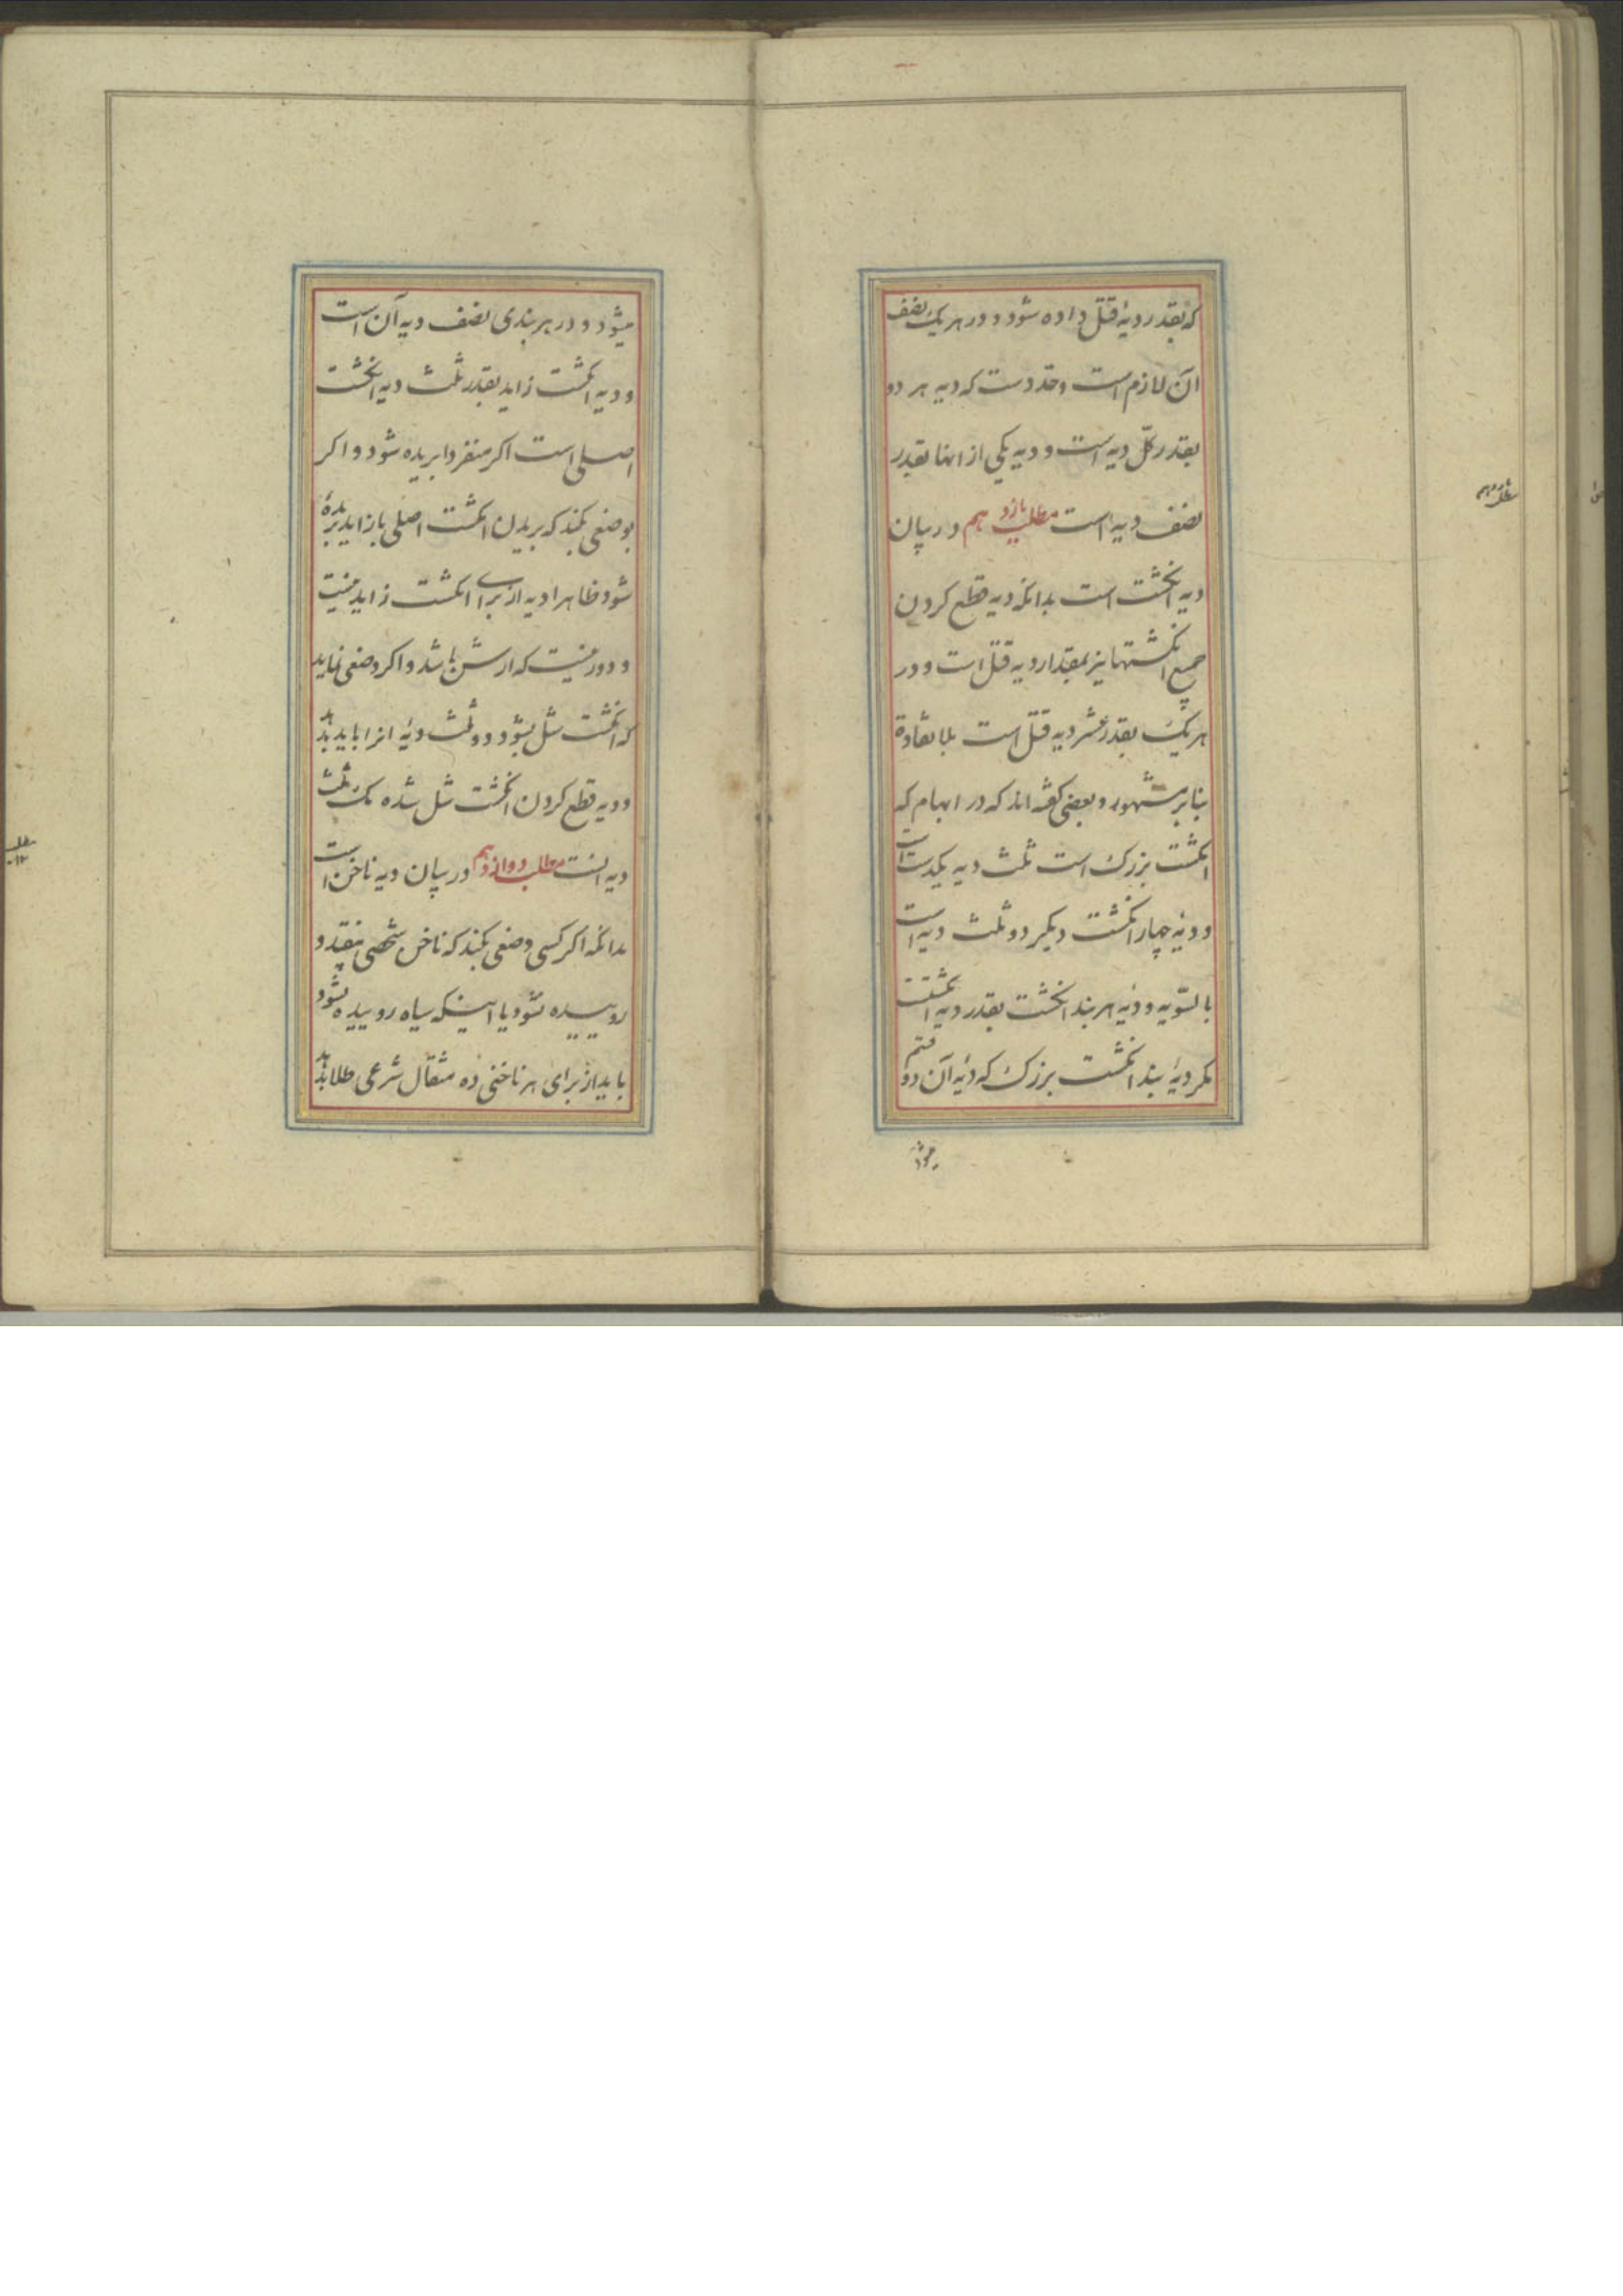 که بقدر دیهٔ قتل داده شود و در هر یک نصف
آن لازم است وحد دست که دیه هر دو
بقدر کلّ دیه است و دیه یکی از انها بقدر
نصف دیه است مطلب یازدهم در بیان
دیه انگشت است بدانکه دیه قطع کردن
جمیع انگشتها نیز بمقدار دیه قتل است و در
هر یک بقدر عشر دیه قتل است بلا تفاوة
بنابر مشهور و بعضی گفته اند که در ابهام که
انگشت بزرک است ثلث دیه یکدست است
و دیهٔ چهار انگشت دیگر دو ثلث دیه است
بالسّویه و دیهٔ هر بند انگشت بقدر دیه انگشت
مگر دیهٔ بند انگشت بزرک که دیهٔ آن دو قسم
میشود
مطلب یازدهم
میشود و در هر بندی نصف دیه آن است
و دیه انگشت زاید بقدر ثلث دیه انگشت
اصلی است اکر منفردا بریده شود و اکر
بوضعی بکند که بریدن انگشت اصلی با زاید بریده
شود ظاهرا دیه از برای انگشت زاید نیست
و دور نیست که ارش باشد و اکر وضعی نماید
که انگشت شل بشود دو ثلث دیهٔ انرا باید بدهد
و دیه قطع کردن انگشت شل شده یک ثلث
دیه انست مطلب دوازدهم در بیان دیه ناخن است
بدانکه اکر کسی وضعی بکند که ناخن شخصی بیفتد و
روییده نشود یا اینکه سیاه روییده بشود
باید از برای هر ناخنی ده مثقال شرعی طلا بدهد
مطلب ۱۲